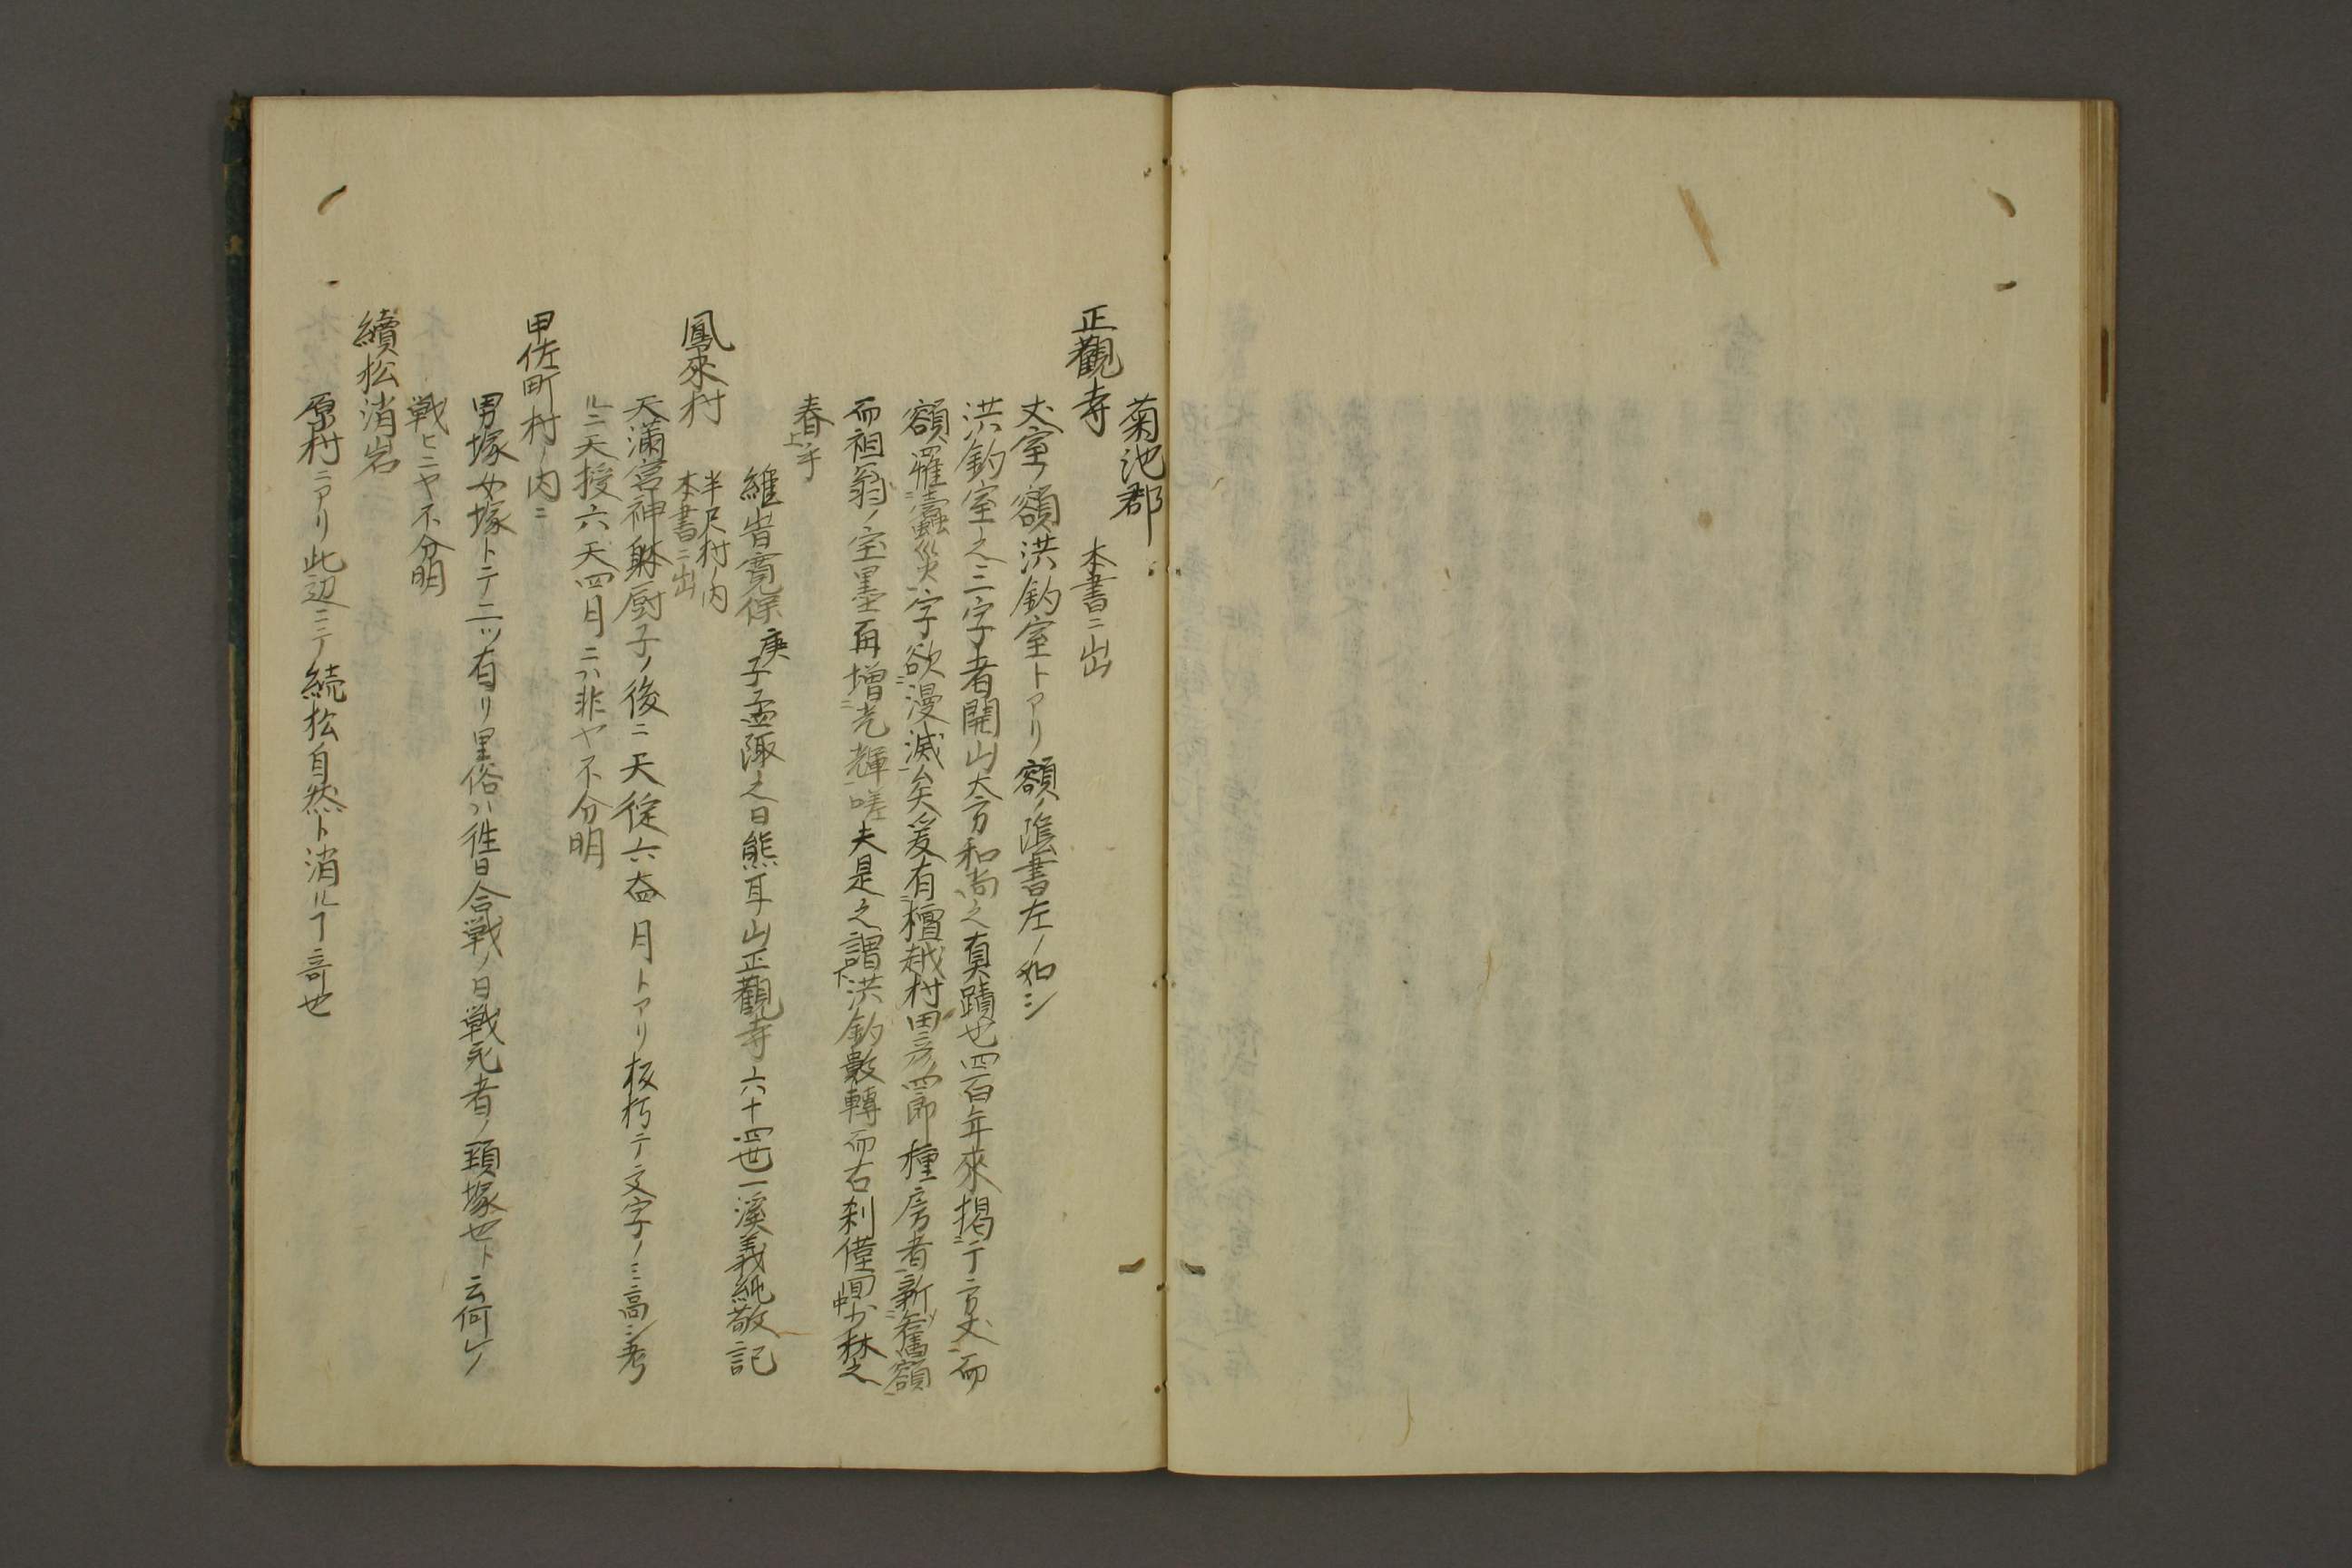 菊池郡
正觀寺　本書ニ出
丈室ノ額洪釣室トアリ額ノ陰書左ノ如シ
洪釣室之三字者開山大方和尚之真蹟也四百年來揭テニ方丈ニ而
額罹蠹災ニ字欲漫滅矣爰有檀越村田彦四郎種房者新舊額
而祖翁ノ宝墨再増光輝嗟夫是之謂洪釣數轉而右刹僅回少林之
春上乎
維岢寛保庚子孟陬之日熊耳山正觀寺六十四世一溪義純敬記
鳳來村　半尺村ノ内本書ニ出
天滿宮神躰厨子ノ後ニ天徔六 月トアリ板朽テ文字ノミ高シ考
ルニ天授六天四月ニハ非ヤ不分明
甲佐町村ノ内ニ
男塚女塚トテ二ツ有リ里俗ハ徃昔合戰ノ日戰死者ノ頭塚也ト云何レノ
戰ヒニヤ不分明
續松消岩
原村ニアリ此辺ニテ続松自然ト消ルヿ奇也